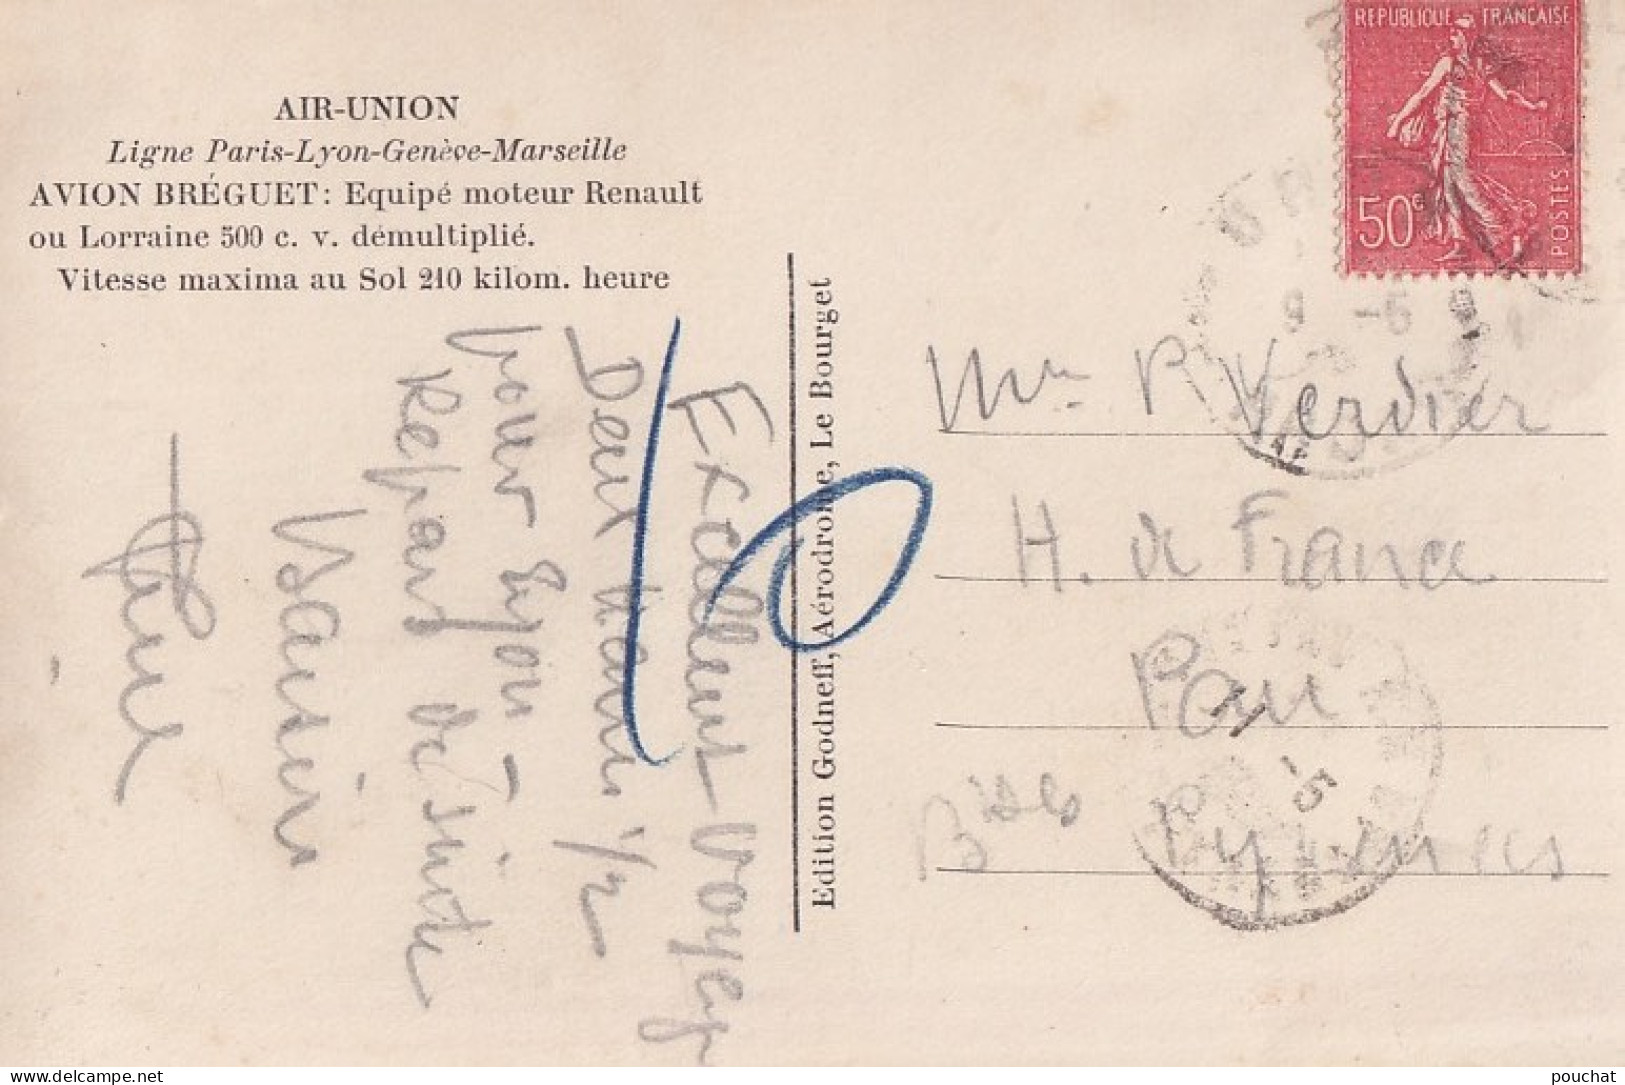 AIR-UNION
Ligne Paris-Lyon-Genève-Marseille
AVION BRÉGUET: Equipé moteur Renault
ou Lorraine 500 c. v. démultiplié.
Vitesse maxima au Sol 210 kilom. heure
Excellent voyage
Deux heures 1/2
pour Lyon -
Repars de suite
Baisers
Edition Godneff, Aérodrome, Le Bourget
REPUBLIQUE FRANCAISE
50c
POSTES
9 -5
Mme P Verdier
H. de France
Pau
Bsses Pyrénées
-5
10
pouchat